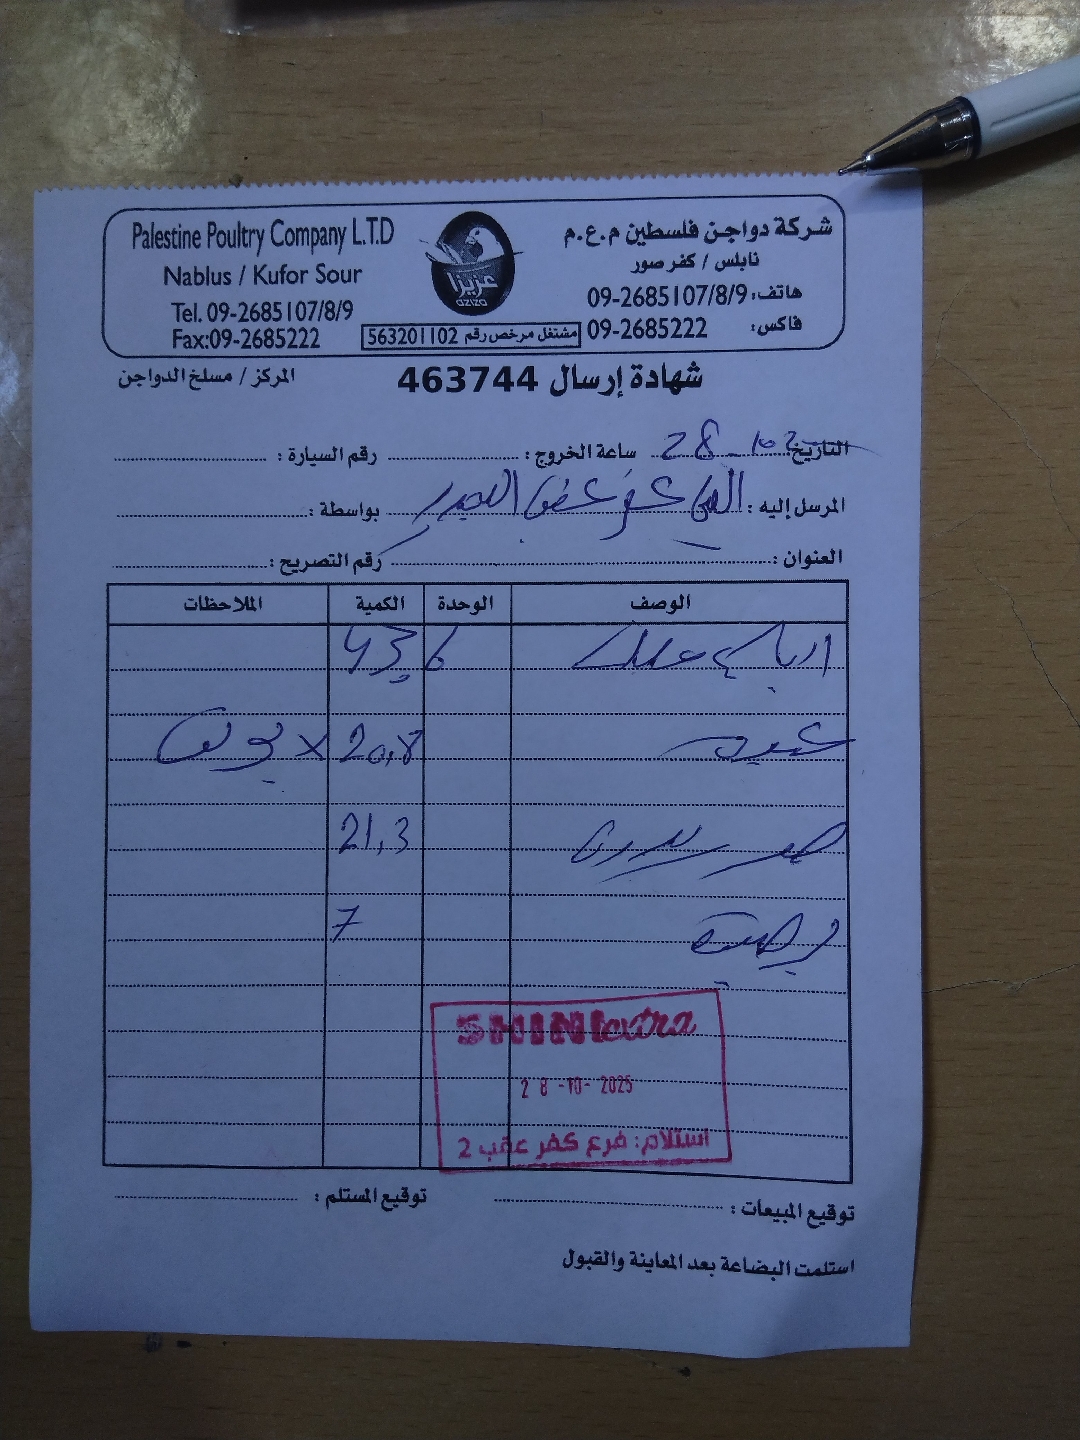 Palestine Poultry Company L.T.D
Nablus / Kufor Sour
Tel. 09-2685107/8/9
Fax:09-2685222
عزيزا
aziza
مشتغل مرخص رقم 563201102
شركة دواجن فلسطين م.ع.م
نابلس / كفر صور
هاتف: 09-2685107/8/9
فاكس: 09-2685222
شهادة إرسال 463744
المركز / مسلخ الدواجن
التاريخ: 28-10 ساعة الخروج: رقم السيارة:
المرسل إليه: بواسطة:
العنوان: رقم التصريح:
الوصف الوحدة الكمية الملاحظات
20,8 ×
21,3
7
SHINI extra
28-10-2025
استلام: فرع كفر عقب 2
توقيع المبيعات: توقيع المستلم:
استلمت البضاعة بعد المعاينة والقبول